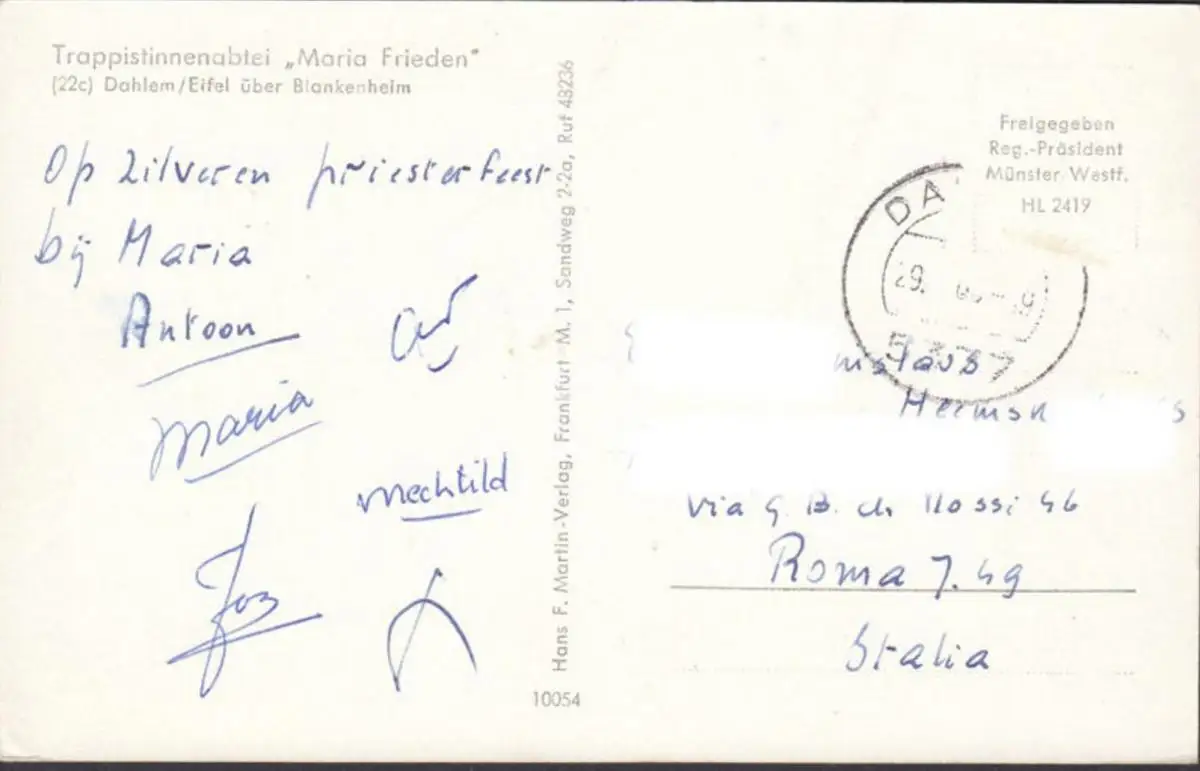 Trappistinnenabtei „Maria Frieden"
(22c) Dahlem/Eifel über Blankenheim
Op zilveren priesterfeest
bij Maria
Antoon
Maria
Mechtild
Jos
Hans F. Martin-Verlag, Frankfurt M. 1, Sandweg 2-2a, Ruf 48236
10054
Freigegeben
Reg.-Präsident
Münster Westf.
HL 2419
DA
29.
5377
Via G. B. de Rossi 46
Roma 7.49
Italia